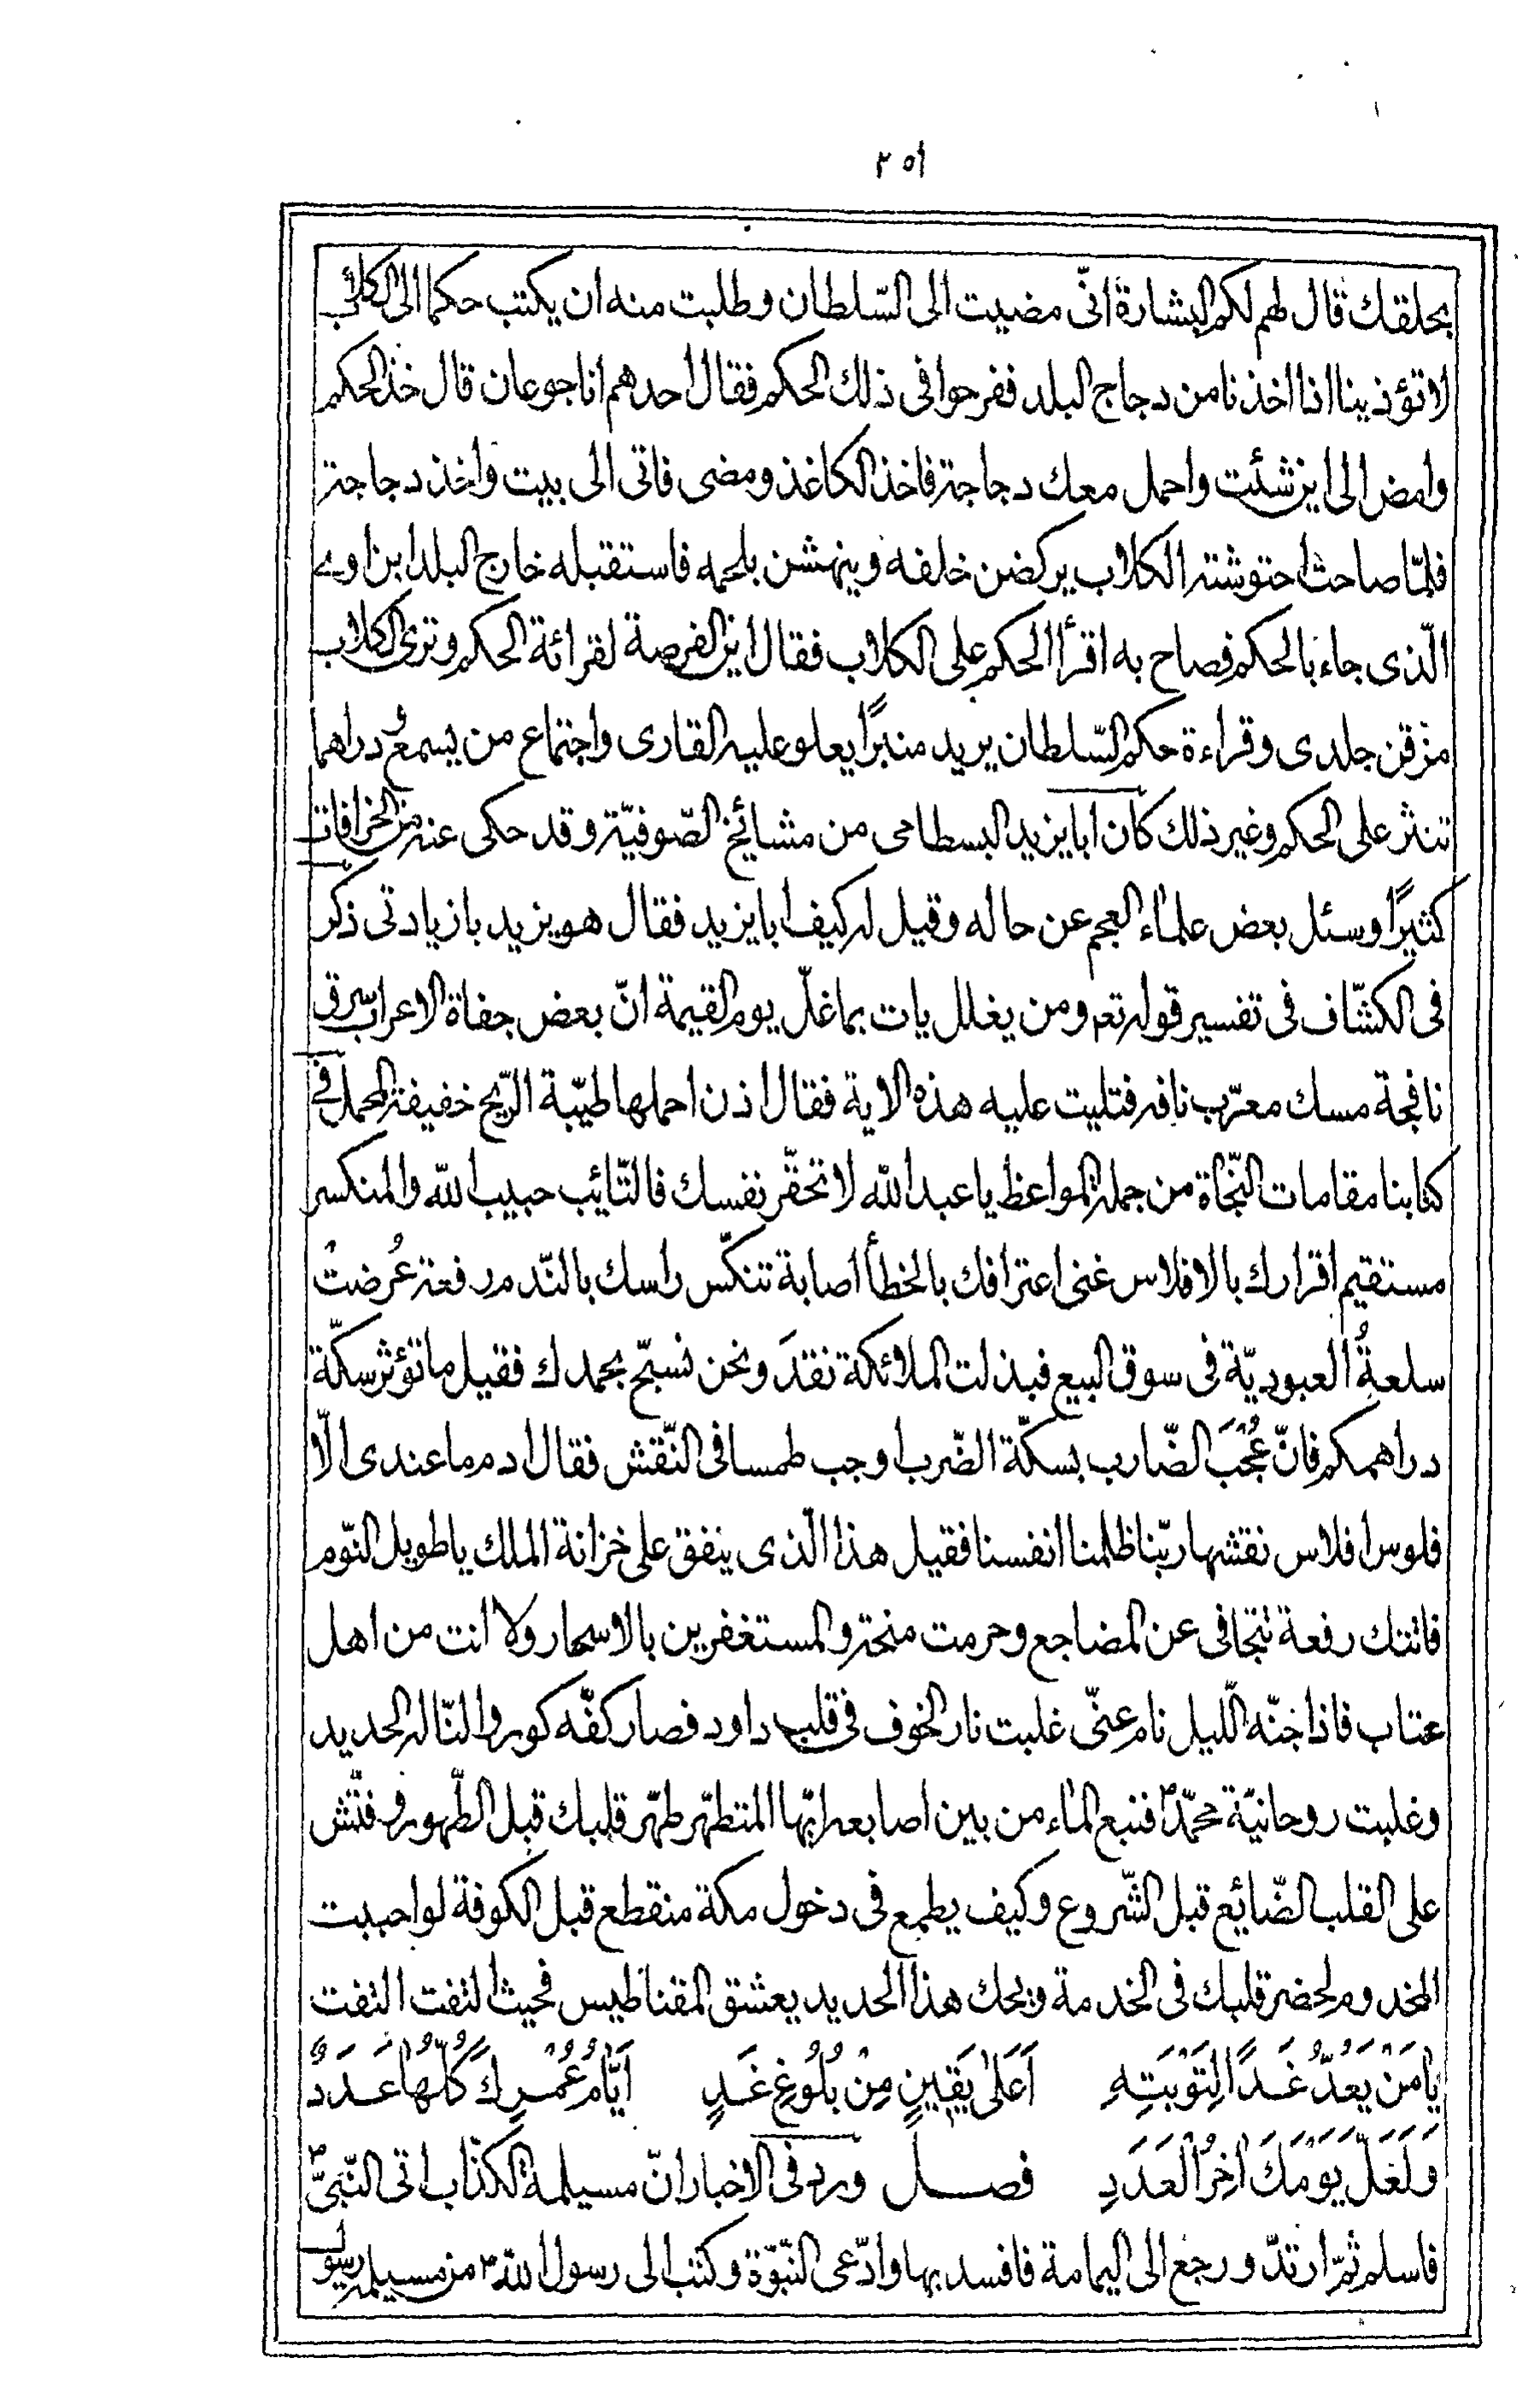 ٢٥١
بحلقك قال لهم لكم البشارة انّى مضيت الى السّلطان وطلبت منه ان يكتب حكما الى الكلاب
لا تؤذينا اذا اخذنا من دجاج البلد ففرحوا فى ذلك الحكم فقال احدهم انا جوعان قال خذ الحكم
وامض الى اين شئت واحمل معك دجاجة فاخذ الكاغذ ومضى فاتى الى بيت واخذ دجاجة
فلمّا صاحت احتوشته الكلاب يركضن خلفه وينهشن بلحمه فاستقبله خارج البلد ابن اوى
الّذى جاء بالحكم فصاح به اقرأ الحكم على الكلاب فقال اين الفرصة لقرائة الحكم وترى الكلاب
مزقن جلدى وقراءة حكم السّلطان يريد منبرًا يعلو عليه القارى واجتماع من يسمع و دراهما
تنثر على الحكم وغير ذلك كان ابا يزيد البسطامى من مشائخ الصّوفيّة وقد حكى عنه من الخرافات
كثيرًا وسئل بعض علماء العجم عن حاله وقيل له كيف ابا يزيد فقال هو يزيد با زيادتى ذكر
فى الكشّاف فى تفسير قوله تعم ومن يغلل يات بما غلّ يوم القيمة انّ بعض جفاة الاعراب سرق
نافجة مسك معرّب نافه فتليت عليه هذه الاية فقال اذن احملها طيّبة الرّيح خفيفة المحمل فى
كتابنا مقامات النّجاة من جملة المواعظ يا عبد الله لا تحقّر نفسك فالتّائب حبيب الله والمنكسر
مستقيم اقرارك بالافلاس غنى اعترافك بالخطأ اصابة تنكّس راسك بالنّدم رفعة عُرضتْ
سلعةُ العبوديّة فى سوق البيع فبذلت الملائكة نقدَ ونحن نسبّح بحمدك فقيل ما تؤثر سكّة
دراهمكم فانّ عُجْبَ الضّارب بسكّة الضّرب اوجب طمسا فى النّقش فقال ادم ما عندى الّا
فلوس افلاس نقشها ربّنا ظلمنا انفسنا فقيل هذا الّذى ينفق على خزانة الملك يا طويل النّوم
فاتتك رفعة تتجافى عن المضاجع وحرمت منحة والمستغفرين بالاسحار ولا انت من اهل
عتاب فاذا جنّه اللّيل نام عنّى غلبت نار الخوف فى قلب داود فصار كفّه كور والنّا له الحديد
وغلبت روحانيّة محمّدٍ فنبع الماء من بين اصابعه ايّها المتطهّر طهّر قلبك قبل الطّهور وفتّش
على القلب الضّايع قبل الشّروع وكيف يطمع فى دخول مكة منقطع قبل الكوفة لو احببت
المخدوم لحضر قلبك فى الخدمة ويحك هذا الحديد يعشق المقناطيس فحيث التفت التفت
يٰا مَنْ يَعُدُّ غَدًا لِتَوْبَتِهِ اَعَلىٰ يَقينٍ مِنْ بُلُوغِ غَدٍ اَيّٰامُ عُمْرِكَ كُلُّهٰا عَدَدٌ
وَلَعَلَّ يَوْمَكَ اٰخِرُ الْعَدَدِ فصل ورد فى الاخبار انّ مسيلمة الكذّاب اتى النّبىَّ ص
فاسلم ثمّ ارتدّ ورجع الى اليمامة فافسد بها وادّعى النّبوّة وكتب الى رسول الله ص من مسيلمة رسول